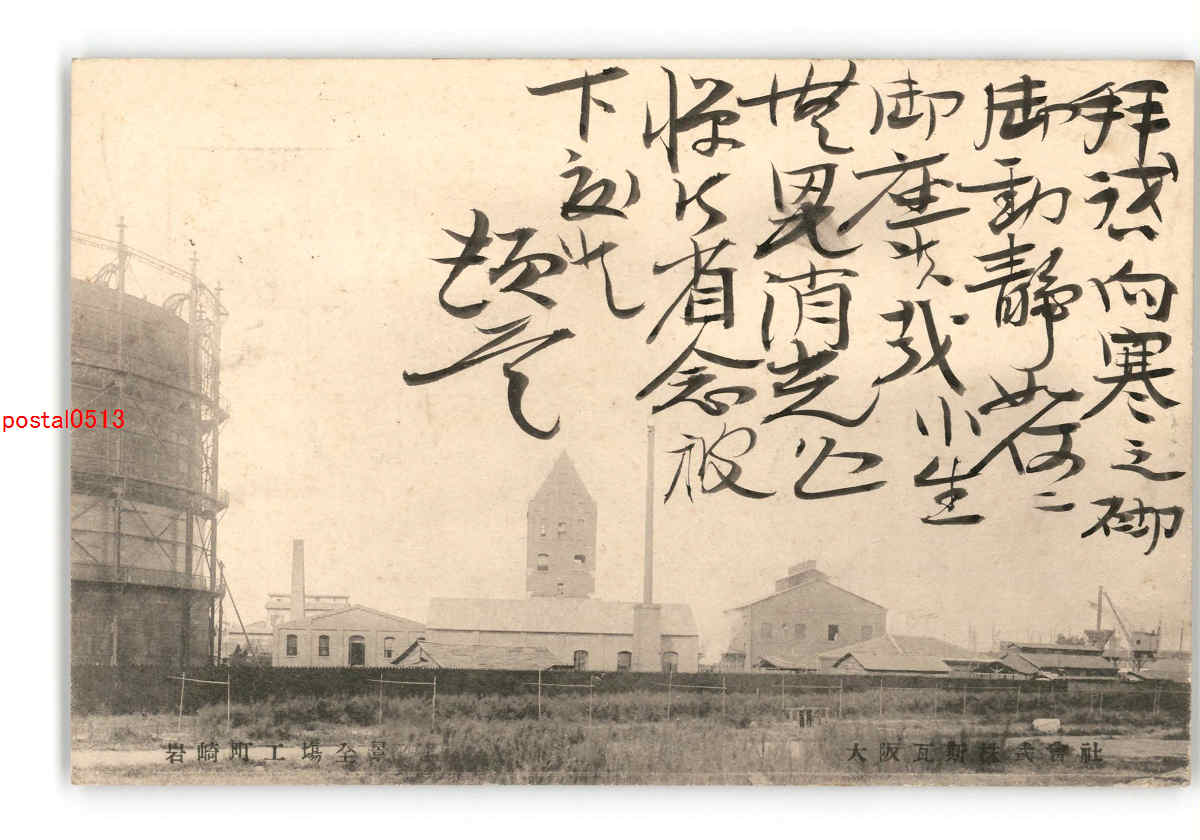 拝啓向寒之砌
御動静如何ニ
御座候哉小生
無異消光
憚御省念被
下度候
頓首
postal0513
岩崎町工塲全景
大阪瓦斯株式會社